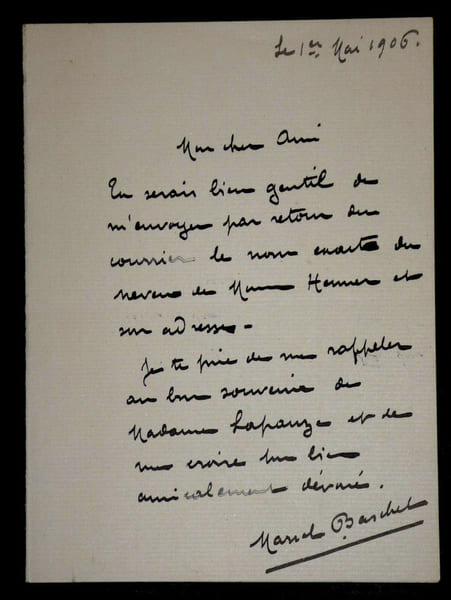 Le 1er Mai 1906.
Mon cher Ami
Tu serais bien gentil de
m'envoyer par retour du
courrier le nom exacte du
neveu de Henner et
son adresse -
Je te prie de me rappeler
au bon souvenir de
Madame Lapauze et de
me croire ton bien
amicalement dévoué.
Marcel Baschet